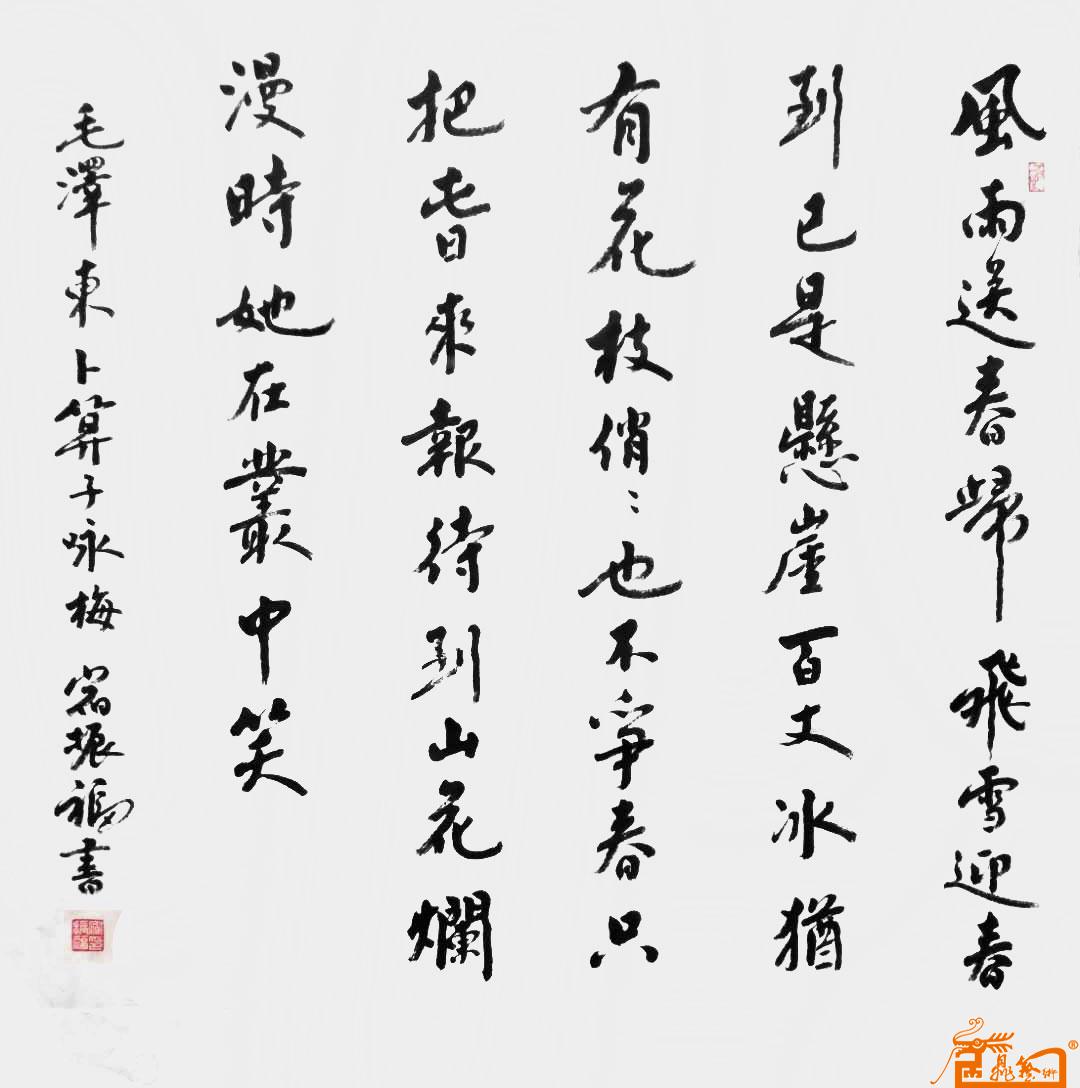 風雨送春歸飛雪迎春
到已是懸崖百丈冰猶
有花枝俏〻也不爭春只
把旾來報待到山花爛
漫時她在叢中笑
毛澤東卜算子咏梅 振福書